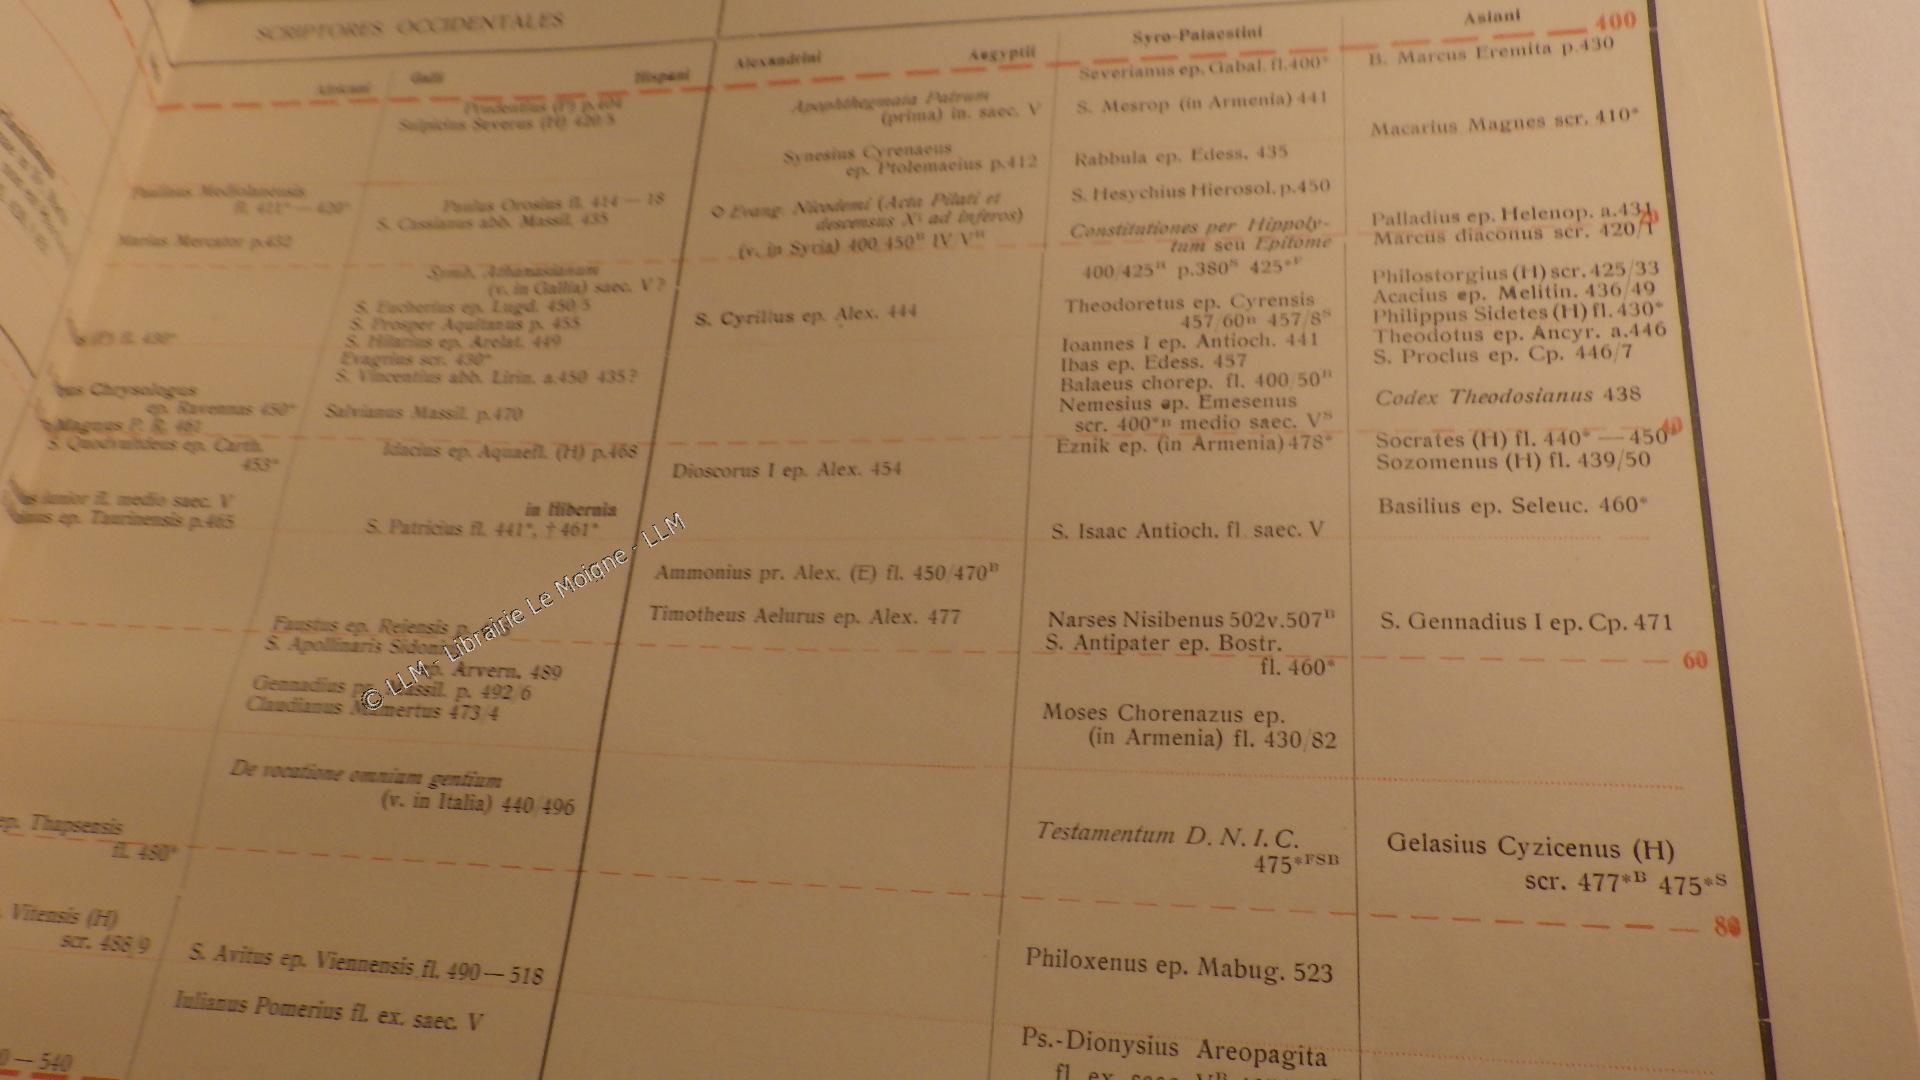 SCRIPTORES OCCIDENTALES
Africani
Galli
Hispani
Prudentius (P) p.404
Sulpicius Severus (H) 420/5
Paulinus Mediolanensis
fl. 411* — 420*
Paulus Orosius fl. 414 — 18
S. Cassianus abb. Massil. 435
Marius Mercator p.432
Symb. Athanasianum
(v. in Gallia) saec. V ?
S. Eucherius ep. Lugd. 450/5
S. Prosper Aquitanus p. 455
S. Hilarius ep. Arelat. 449
Evagrius scr. 430*
S. Vincentius abb. Lirin. a.450 435?
(P) fl. 430*
Chrysologus
ep. Ravennas 450*
Salvianus Massil. p.470
Magnus P. R. 461
S. Quodvultdeus ep. Carth.
453*
Idacius ep. Aquaefl. (H) p.468
junior fl. medio saec. V
ep. Taurinensis p.465
in Hibernia
S. Patricius fl. 441*, † 461*
Faustus ep. Reiensis p.
S. Apollinaris Sidon
Arvern. 489
Gennadius pr. Massil. p. 492/6
Claudianus Mamertus 473/4
De vocatione omnium gentium
(v. in Italia) 440/496
ep. Thapsensis
fl. 480*
Vitensis (H)
scr. 488/9
S. Avitus ep. Viennensis fl. 490 — 518
Iulianus Pomerius fl. ex. saec. V
— 540
Alexandrini
Aegyptii
Apophthegmata Patrum
(prima) in. saec. V
Synesius Cyrenaeus
ep. Ptolemaeius p.412
◇ Evang. Nicodemi (Acta Pilati et
descensus Xⁱ ad inferos)
(v. in Syria) 400/450ᴮ IV/Vᴴ
S. Cyrillus ep. Alex. 444
Dioscorus I ep. Alex. 454
Ammonius pr. Alex. (E) fl. 450/470ᴮ
Timotheus Aelurus ep. Alex. 477
Syro-Palaestini
Severianus ep. Gabal. fl.400*
S. Mesrop (in Armenia) 441
Rabbula ep. Edess. 435
S. Hesychius Hierosol. p.450
Constitutiones per Hippoly-
tum seu Epitome
400/425ᴴ p.380ˢ 425*ꟳ
Theodoretus ep. Cyrensis
457/60ᴮ 457/8ˢ
Ioannes I ep. Antioch. 441
Ibas ep. Edess. 457
Balaeus chorep. fl. 400/50ᴮ
Nemesius ep. Emesenus
scr. 400*ᴮ medio saec. Vˢ
Eznik ep. (in Armenia) 478*
S. Isaac Antioch. fl. saec. V
Narses Nisibenus 502v.507ᴮ
S. Antipater ep. Bostr.
fl. 460*
Moses Chorenazus ep.
(in Armenia) fl. 430/82
Testamentum D. N. I. C.
475*ꟳˢᴮ
Philoxenus ep. Mabug. 523
Ps.-Dionysius Areopagita
fl. ex. saec.
Asiani
400
B. Marcus Eremita p.430
Macarius Magnes scr. 410*
Palladius ep. Helenop. a.431
20
Marcus diaconus scr. 420/1
Philostorgius (H) scr. 425/33
Acacius ep. Melitin. 436/49
Philippus Sidetes (H) fl. 430*
Theodotus ep. Ancyr. a.446
S. Proclus ep. Cp. 446/7
Codex Theodosianus 438
40
Socrates (H) fl. 440* — 450*
Sozomenus (H) fl. 439/50
Basilius ep. Seleuc. 460*
S. Gennadius I ep. Cp. 471
60
Gelasius Cyzicenus (H)
scr. 477*ᴮ 475*ˢ
80
© LLM - Librairie Le Moigne - LLM